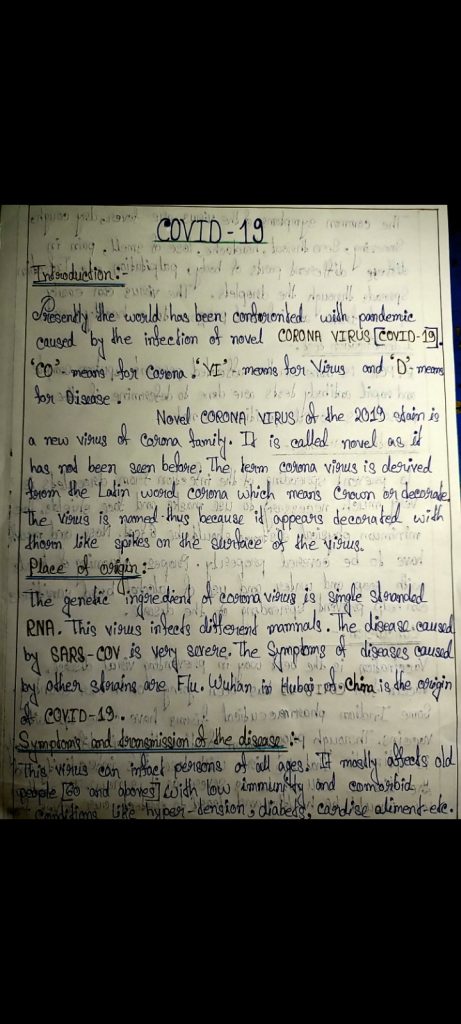 COVID-19
Introduction:-
Presently the world has been confronted with pandemic
caused by the infection of novel CORONA VIRUS [COVID-19].
'CO'- means for Carona. 'VI'- means for Virus and 'D'- means
for Disease.
Novel CORONA VIRUS of the 2019 stain is
a new virus of Corona family. It is called novel as it
has not been seen before. The term corona virus is derived
from the Latin word corona which means Crown or decorate.
The virus is named thus because it appears decorated with
thorn like spikes on the surface of the virus.
Place of origin:
The genetic ingredient of corona virus is single stranded
RNA. This virus infects different mammals. The disease caused
by SARS-COV is very severe. The Symptoms of diseases caused
by other strains are Flu. Wuhan in Hubai of China is the origin
of COVID-19.
Symptoms and transmission of the disease :-
This virus can infact persons of all ages. It mostly affects old
people [60 and above] with low immunity and comorbid
conditions like hyper-tension, diabets, cardise aliment etc.